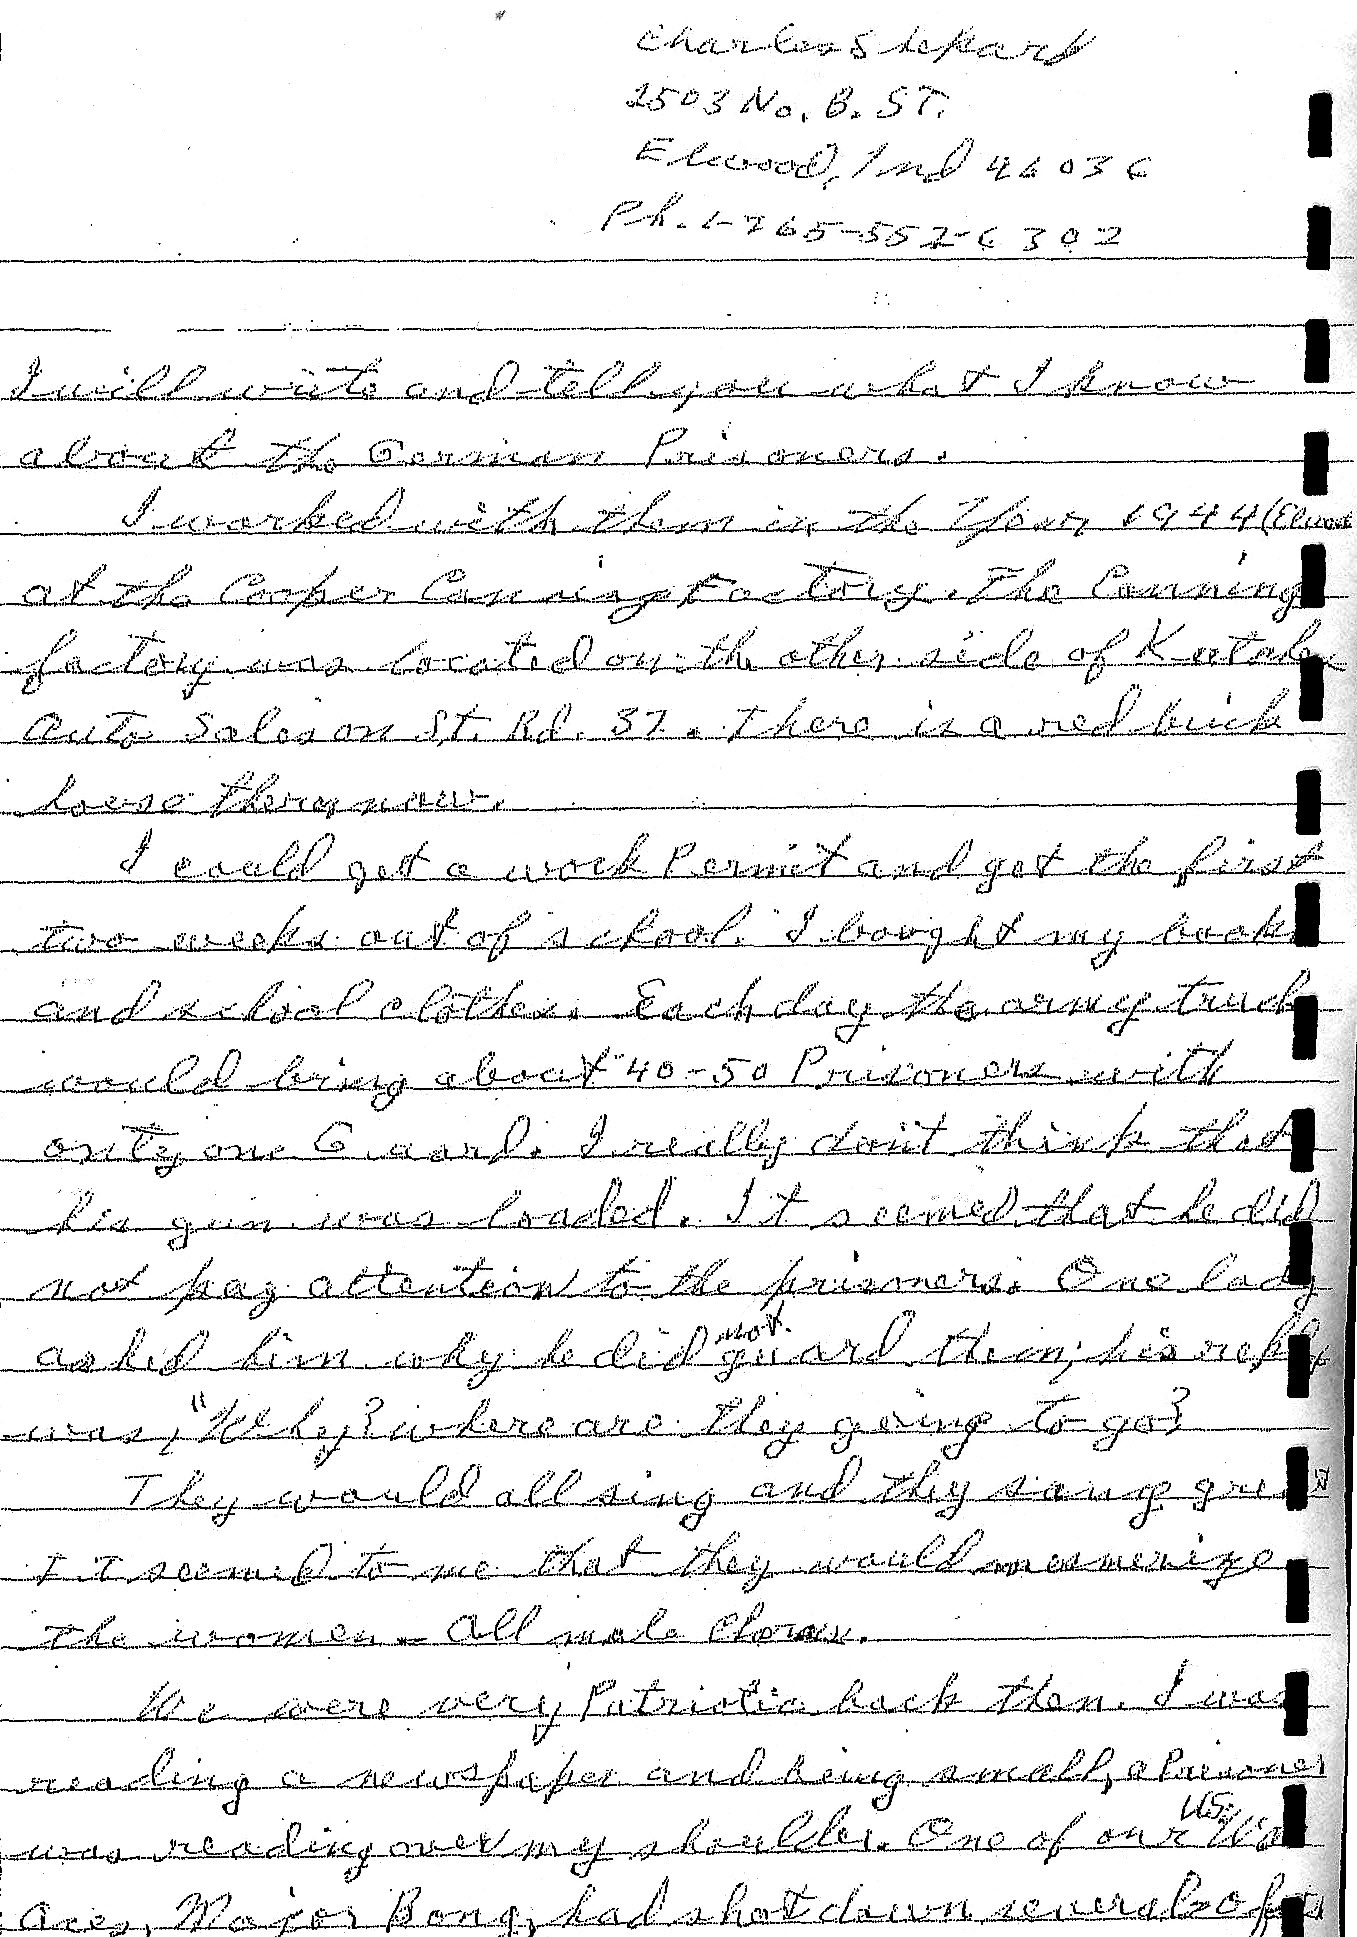 Charles Shepard
2503 No. B. ST.
Elwood, Ind 46036
Ph. 1-765-552-6302
I will write and tell you what I know
about the German Prisoners.
I worked with them in the Year 1944 (Elwood
at the Cooper Canning Factory. The Canning
factory was located on the other side of
Auto Sales on St. Rd. 37. There is a red brick
house there now.
I could get a work Permit and get the first
two weeks out of school. I bought my books
and school clothes. Each day the army truck
would bring about 40-50 Prisoners with
only one Guard. I really don't think that
his gun was loaded. It seemed that he did
not pay attention to the prisoners. One lady
asked him why he did not guard them; his reply
was, "Why? where are they going to go?
They would all sing and they sang great
It seemed to me that they would mesmerize
the women - all male Chorus.
We were very Patriotic back then. I was
reading a newspaper and being small, a Prisoner
was reading over my shoulder. One of our US War
Aces, Major Bong, had shot down several of